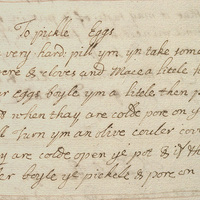 To pickle Eggs
very hard pill ym yn take some
pere & cloves and Macea litele
r eggs boyle ym a litele then p
when thay are colde pore on y
ll Turn ym an olive couler cov
y are colde open ye pot &
er boyle ye pickele & pore on